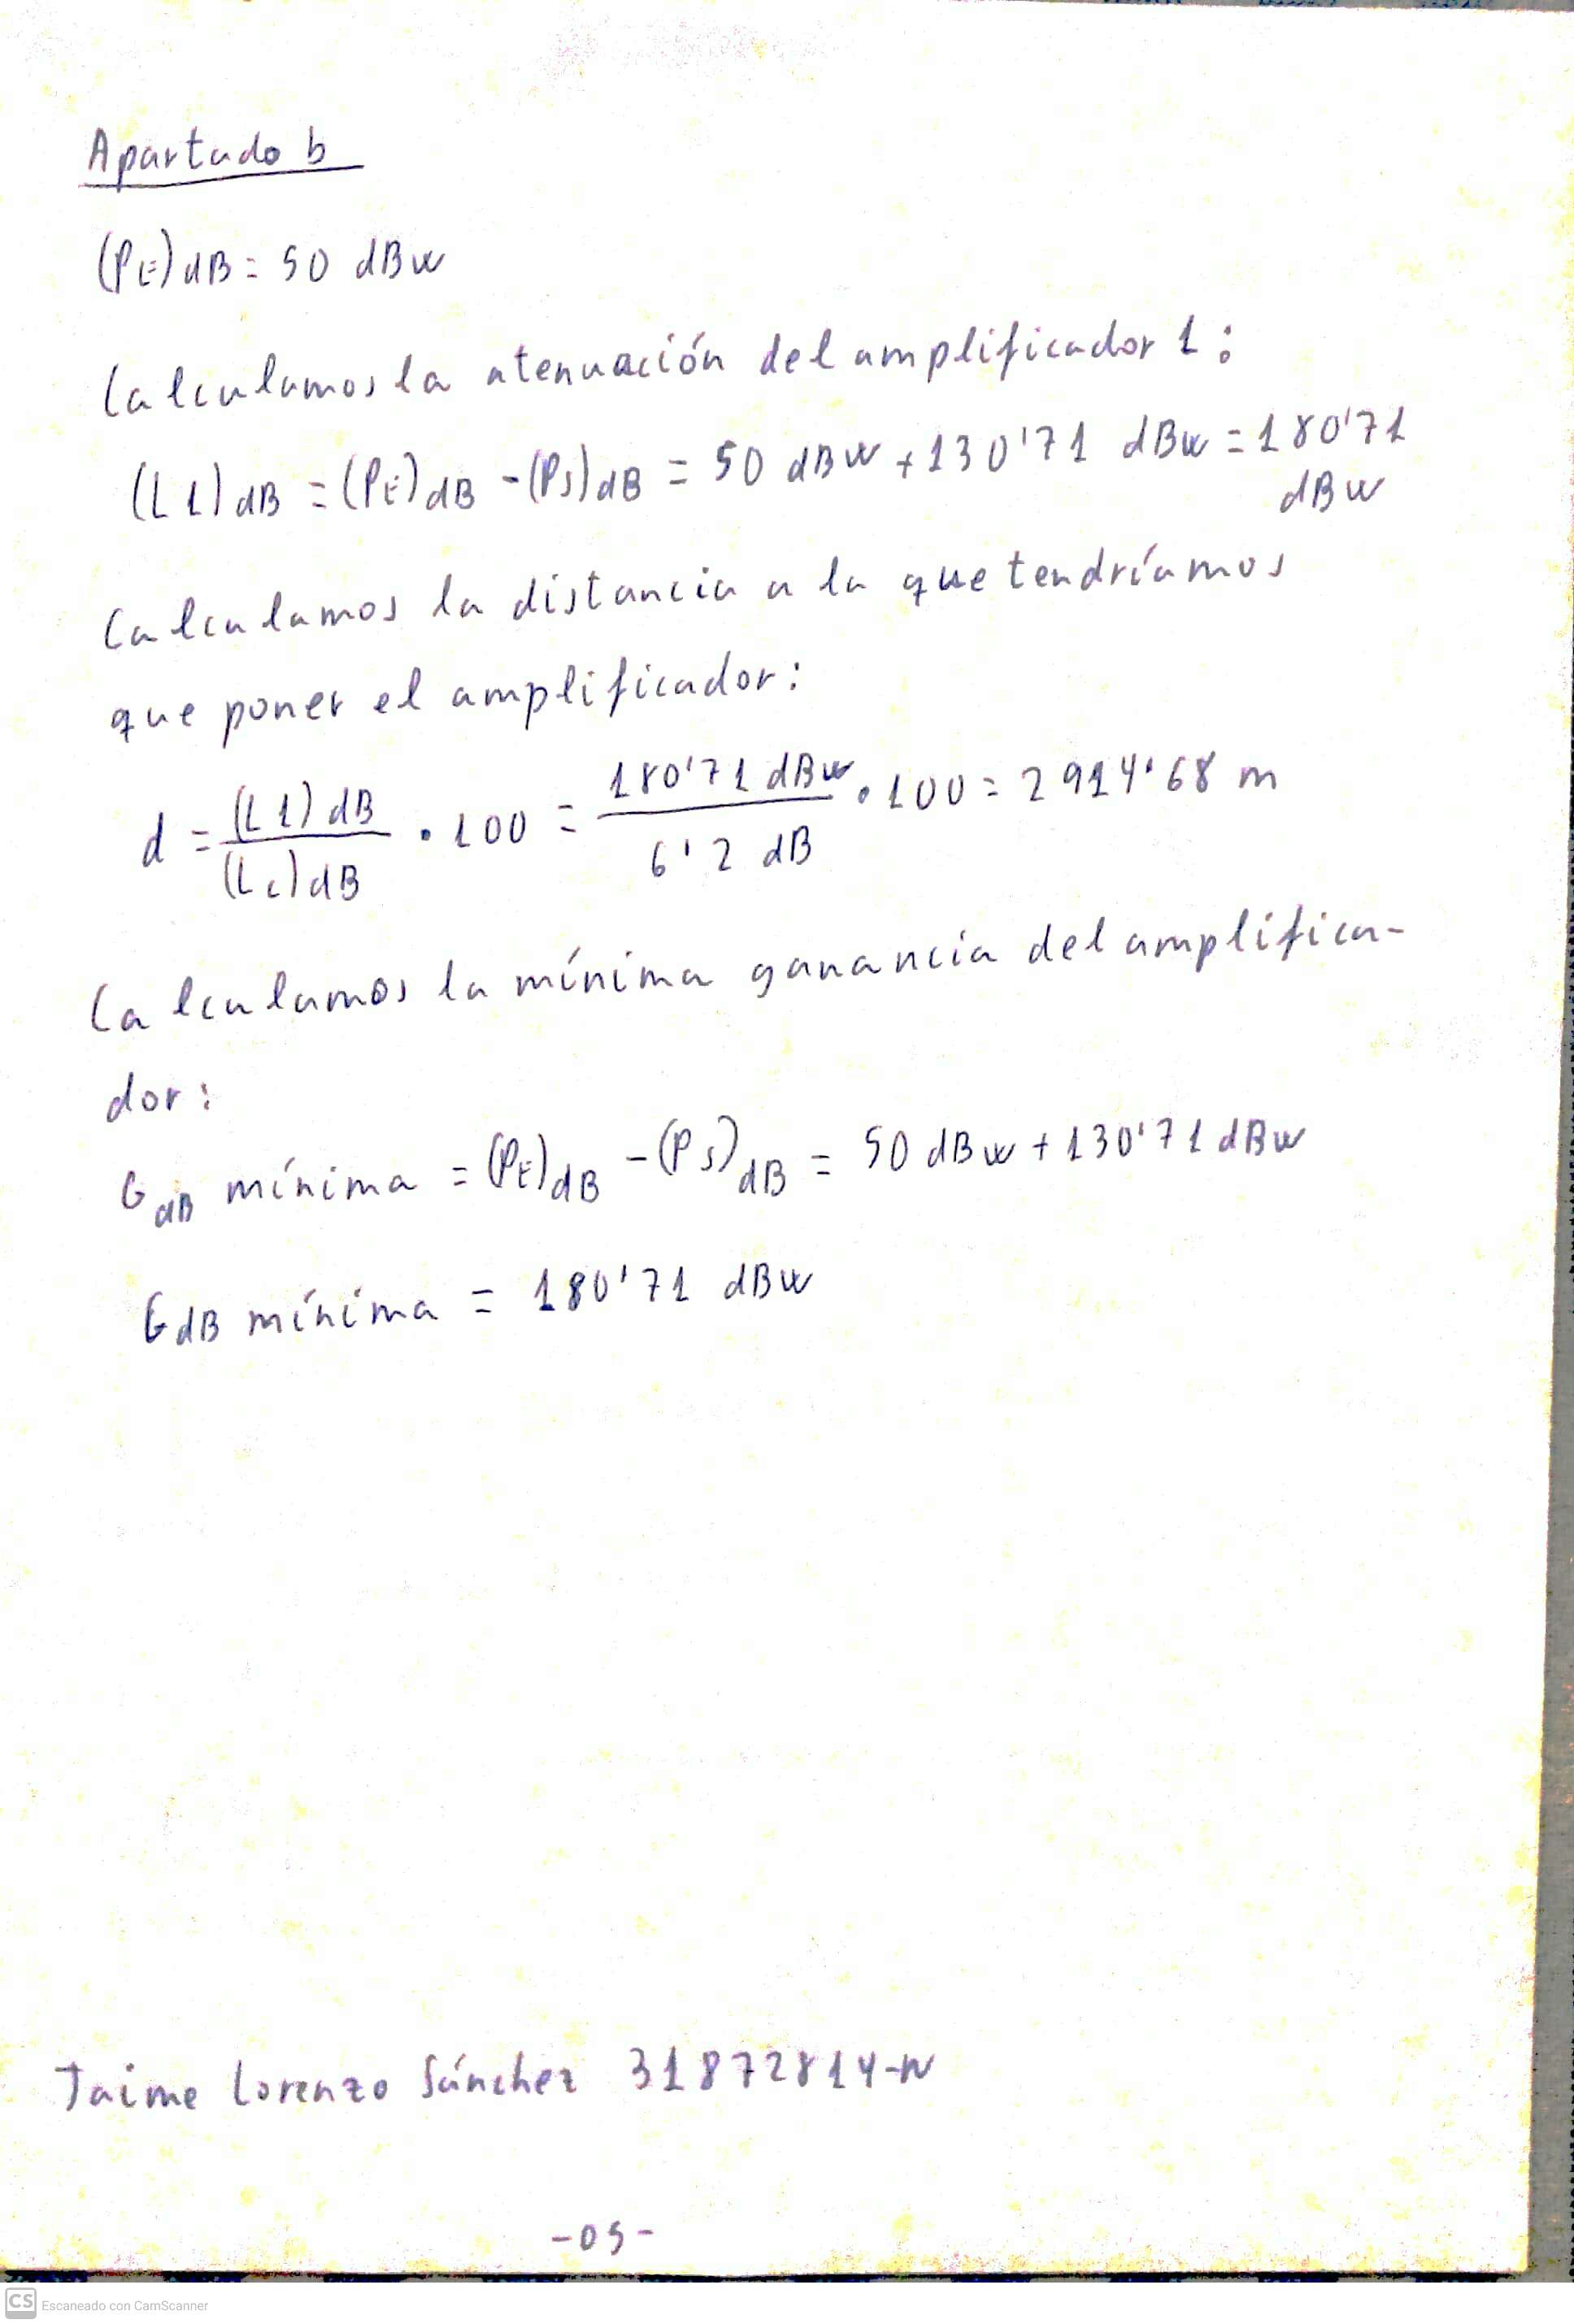 Apartado b
(PE)dB = 50 dBw
Calculamos la atenuación del amplificador 1:
(L1)dB = (PE)dB - (PS)dB = 50 dBw + 130'71 dBw = 180'71
dBw
Calculamos la distancia a la que tendríamos
que poner el amplificador:
d = (L1)dB / (Lc)dB · 100 = 180'71 dBw / 6'2 dB · 100 = 2914'68 m
Calculamos la mínima ganancia del amplifica-
dor:
GdB mínima = (PE)dB - (PS)dB = 50 dBw + 130'71 dBw
GdB mínima = 180'71 dBw
Jaime Lorenzo Sánchez 31872814-N
-05-
CS Escaneado con CamScanner